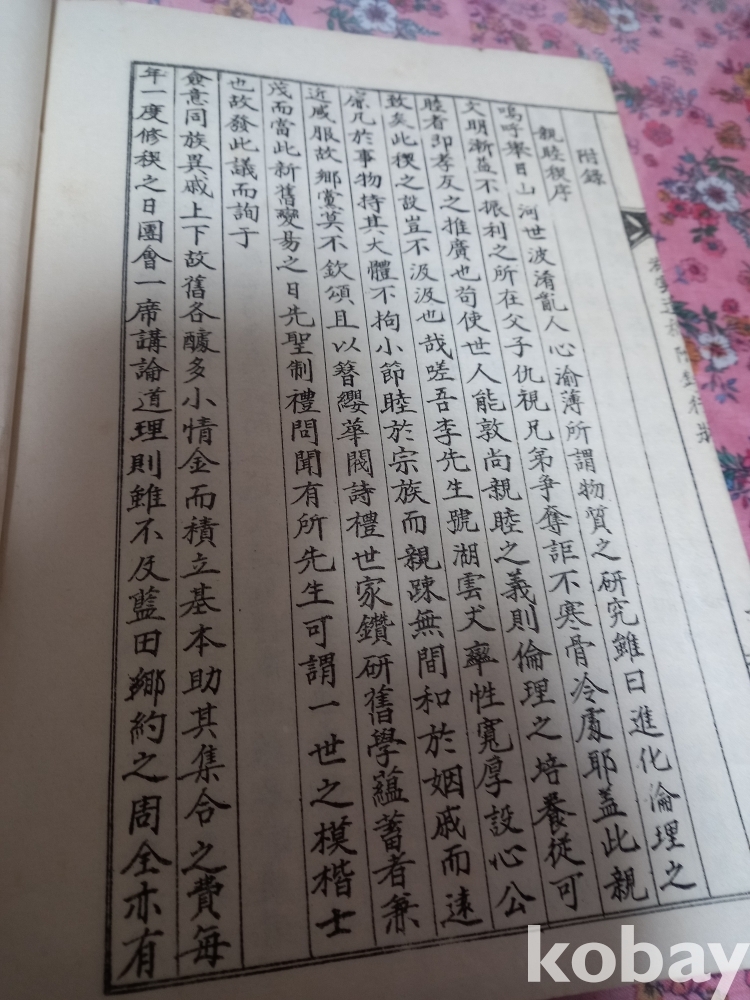 附錄
親睦稧序
嗚呼擧目山河世波淆亂人心渝薄所謂物質之研究雖曰進化倫理之
文明漸益不振利之所在父子仇視兄弟爭奪詎不寒骨冷處耶盖此親
睦者卽孝友之推廣也苟使世人能敦尚親睦之義則倫理之培養從可
致矣此稧之設豈不汲汲也哉嗟吾李先生號湖雲丈率性寬厚設心公
廉凡於事物持其大體不拘小節睦於宗族而親踈無間和於姻戚而遠
近咸服故鄉黨莫不欽頌且以簪纓華閥詩禮世家鑽研舊學蘊蓄者兼
茂而當此新舊變易之日先聖制禮問聞有所先生可謂一世之模楷士
也故發此議而詢于
僉意同族異戚上下故舊各醵多小情金而積立基本助其集合之費每
年一度修稧之日團會一席講論道理則雖不及藍田鄉約之周全亦有
kobay